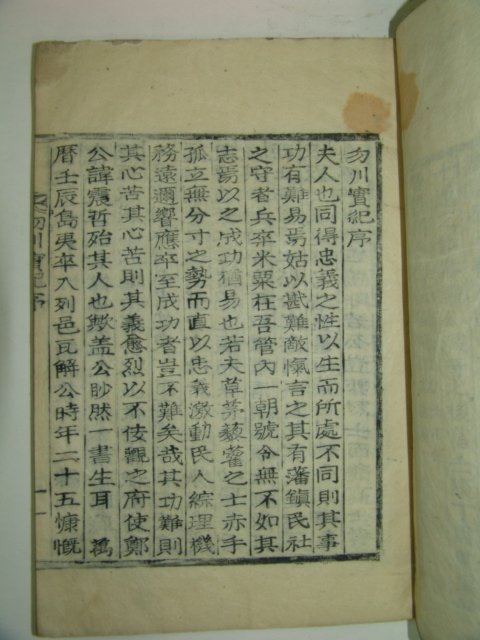 勿川實紀序
夫人也同得忠義之性以生而所處不同則其事
功有難易焉姑以戡難敵愾言之其有藩鎭民社
之守者兵卒米粟在吾管內一朝號令無不如其
志焉以之成功猶易也若夫草茅藜藿之士赤手
孤立無分寸之勢而直以忠義激動民人綜理機
務遠邇響應卒至成功者豈不難矣哉其功難則
其心苦其心苦則其義愈烈以不佞觀之府使鄭
公諱霞哲殆其人也歟盖公眇然一書生耳 萬
曆壬辰島夷卒入列邑瓦解公時年二十五慷慨
勿川實紀序 一